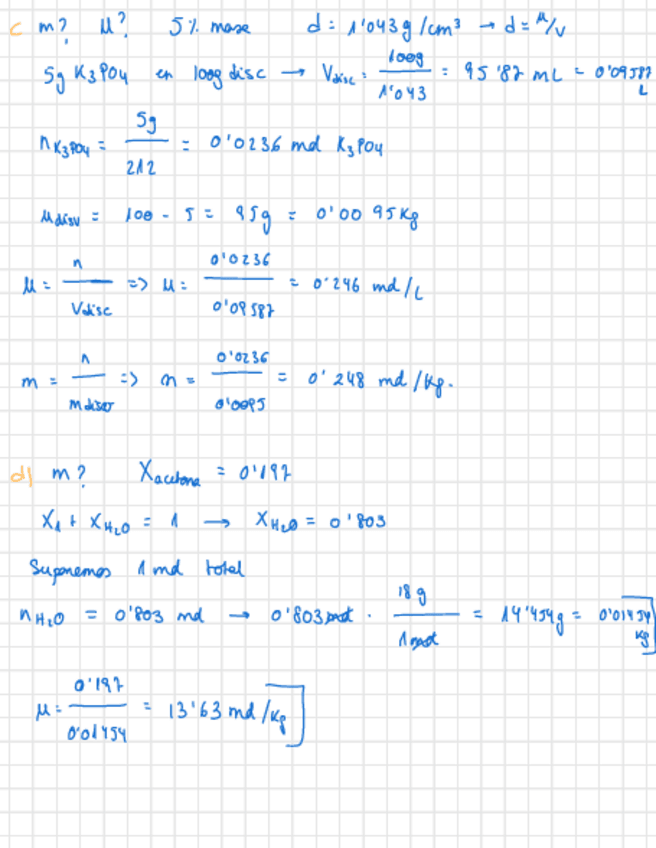 c m? M? 5% masa d = 1'043 g/cm³ → d = m/v
5g K₃PO₄ en 100g disc → Vdisc = 100g / 1'043 = 95'87 mL = 0'09587 L
n K₃PO₄ = 5g / 212 = 0'0236 mol K₃PO₄
mdisv = 100 - 5 = 95g = 0'0095 Kg
M = n / Vdisc => M = 0'0236 / 0'09587 = 0'246 mol/L
m = n / mdisv => m = 0'0236 / 0'0095 = 0'248 mol/Kg.
d) m? Xacetona = 0'197
X₁ + X H₂O = 1 → X H₂O = 0'803
Suponemos 1 mol total
n H₂O = 0'803 mol → 0'803 mol · 18 g / 1 mol = 14'454g = 0'01454 Kg
M = 0'197 / 0'01454 = 13'63 mol/Kg